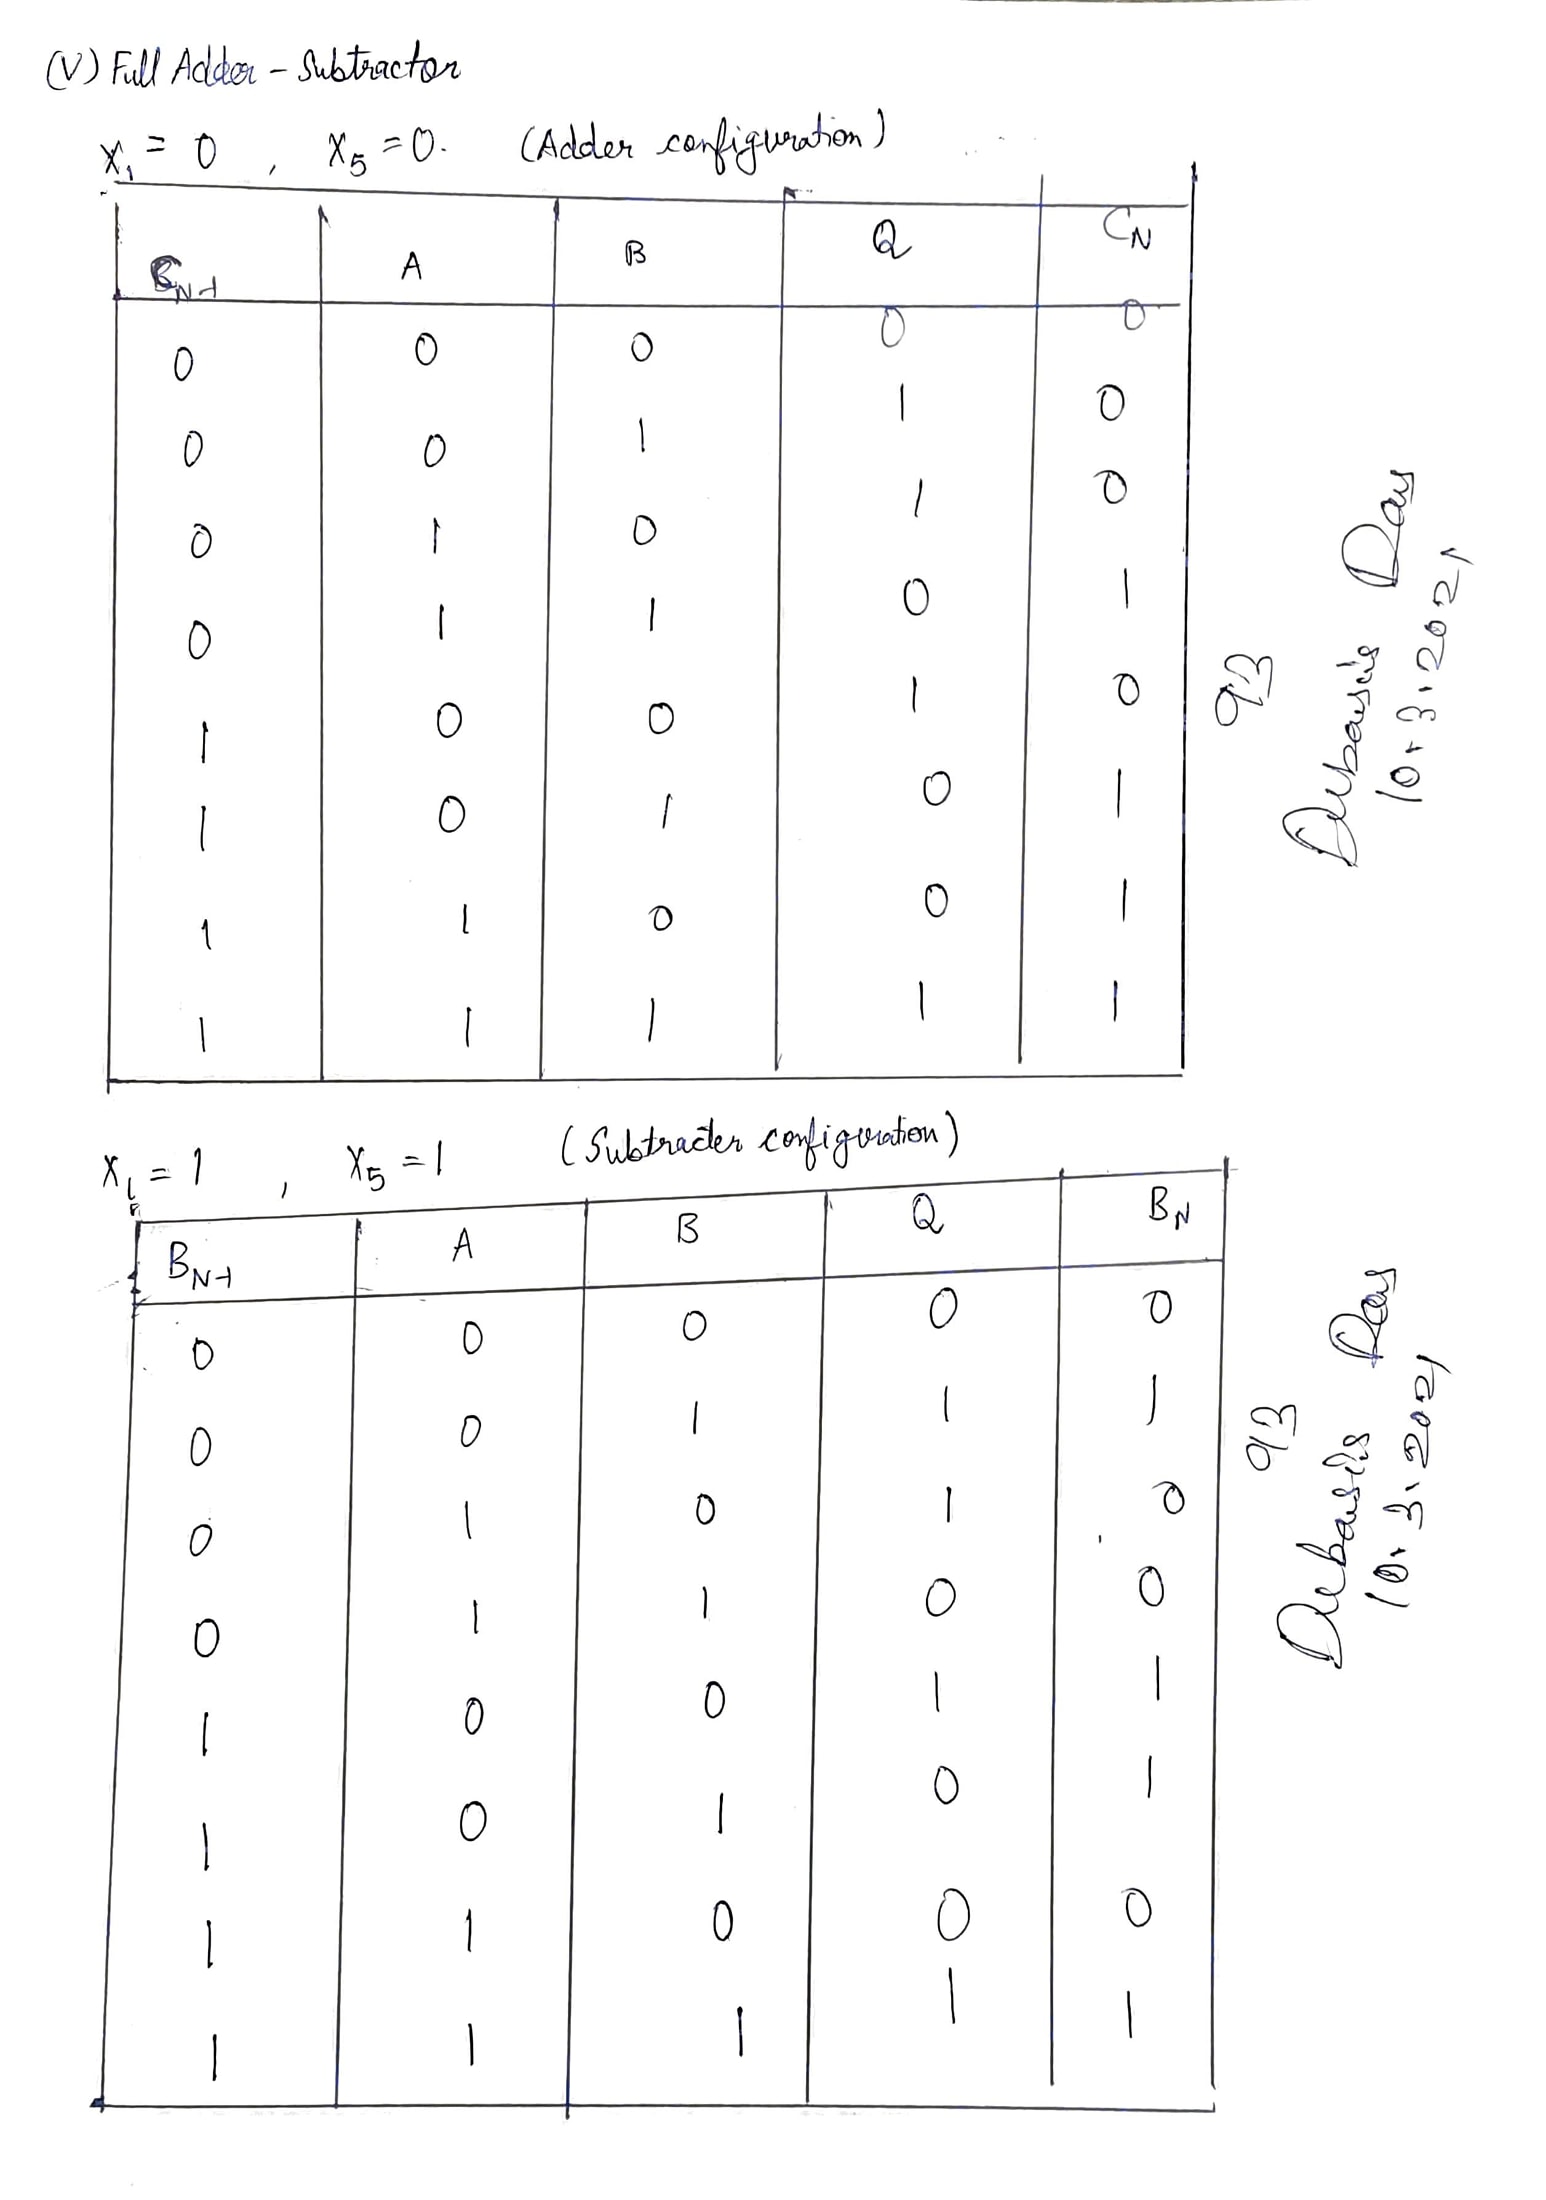 (V) Full Adder - Subtractor
X1 = 0 , X5 = 0. (Adder configuration)
CN-1 A B Q CN
0 0 0 0 0
0 0 1 1 0
0 1 0 1 0
0 1 1 0 1
1 0 0 1 0
1 0 1 0 1
1 1 0 0 1
1 1 1 1 1
93
Debasis Das
10.3.2021
X1 = 1 , X5 = 1 (Subtracter configuration)
BN-1 A B Q BN
0 0 0 0 0
0 0 1 1 1
0 1 0 1 0
0 1 1 0 0
1 0 0 1 1
1 0 1 0 1
1 1 0 0 0
1 1 1 1 1
93
Debasis Das
10.3.2021